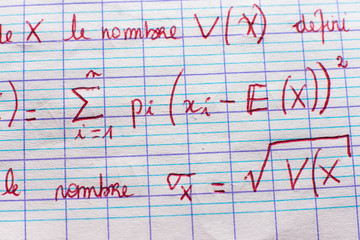 de X le nombre V(X) défini
) = \sum_{i=1}^{n} pi (xi - E(X))²
le nombre σ_X = √V(X